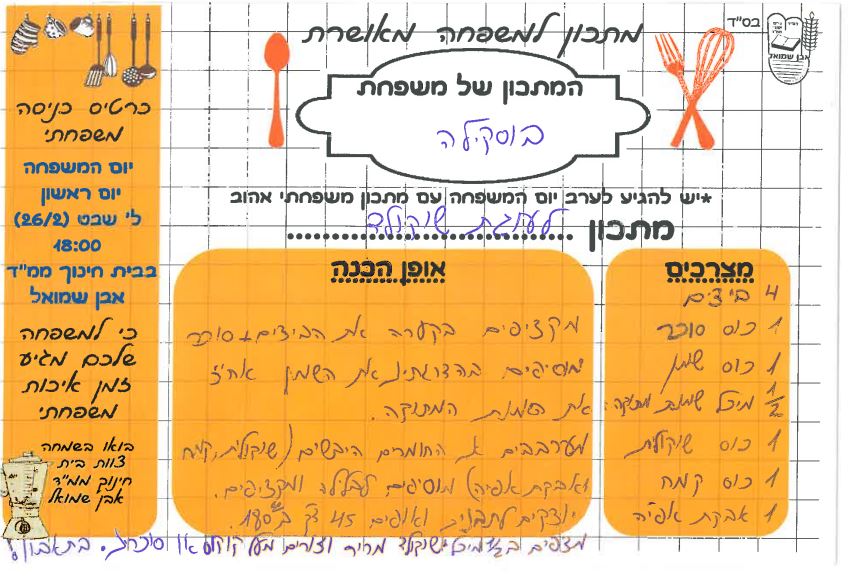 בס"ד
אבן שמואל
מתכון למשפחה מאושרת
המתכון של משפחת
בוסקילה
*יש להגיע לערב יום המשפחה עם מתכון משפחתי אהוב
מתכון לעוגת שוקולד
מצרכים
4 ביצים
1 כוס סוכר
1 כוס שמן
1/2 מיכל שמנת מתוקה
1 כוס שוקולית
1 כוס קמח
1 אבקת אפיה
אופן הכנה
מקציפים בקערה את הביצים + סוכר
מוסיפים בהדרגתיות את השמן אח"כ
את השמנת המתוקה.
מערבבים את החומרים היבשים (שוקולית, קמח
ואבקת אפיה) מוסיפים לבלילה ומקציפים.
יוצקים לתבנית ואופים 45 דק' ב 180°.
מצפים ב 1/2 מיכל שוקולד מריר וצורים מעל קוקוס או סוכריות. בתאבון!
כרטיס כניסה
משפחתי
יום המשפחה
יום ראשון
ל' שבט (26/2)
18:00
בבית חינוך ממ"ד
אבן שמואל
כי למשפחה
שלכם מגיע
זמן איכות
משפחתי
בואו בשמחה
צוות בית
חינוך ממ"ד
אבן שמואל